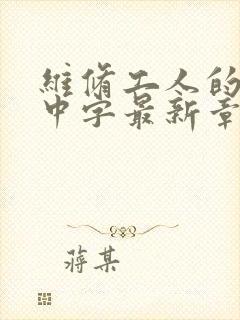 維脩工人的
中字最新章
蔣某